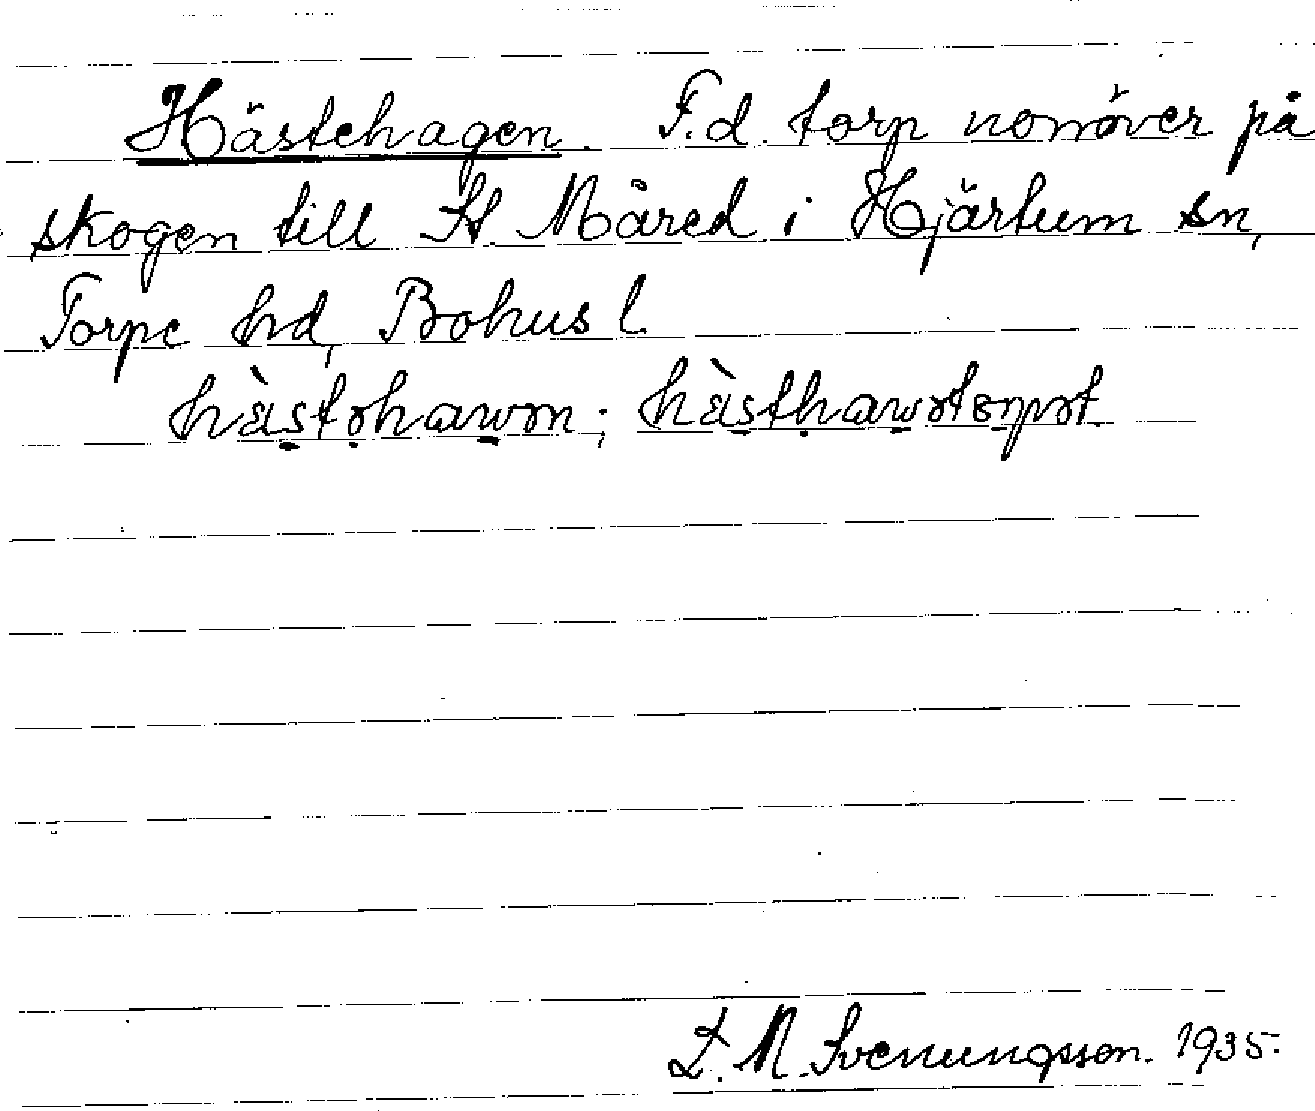 Hästehagen. F.d. torp norröver på
skogen till St. Måred i Hjärtum sn,
Torpe hd, Bohusl.
L. M. Svenungsson. 1935.